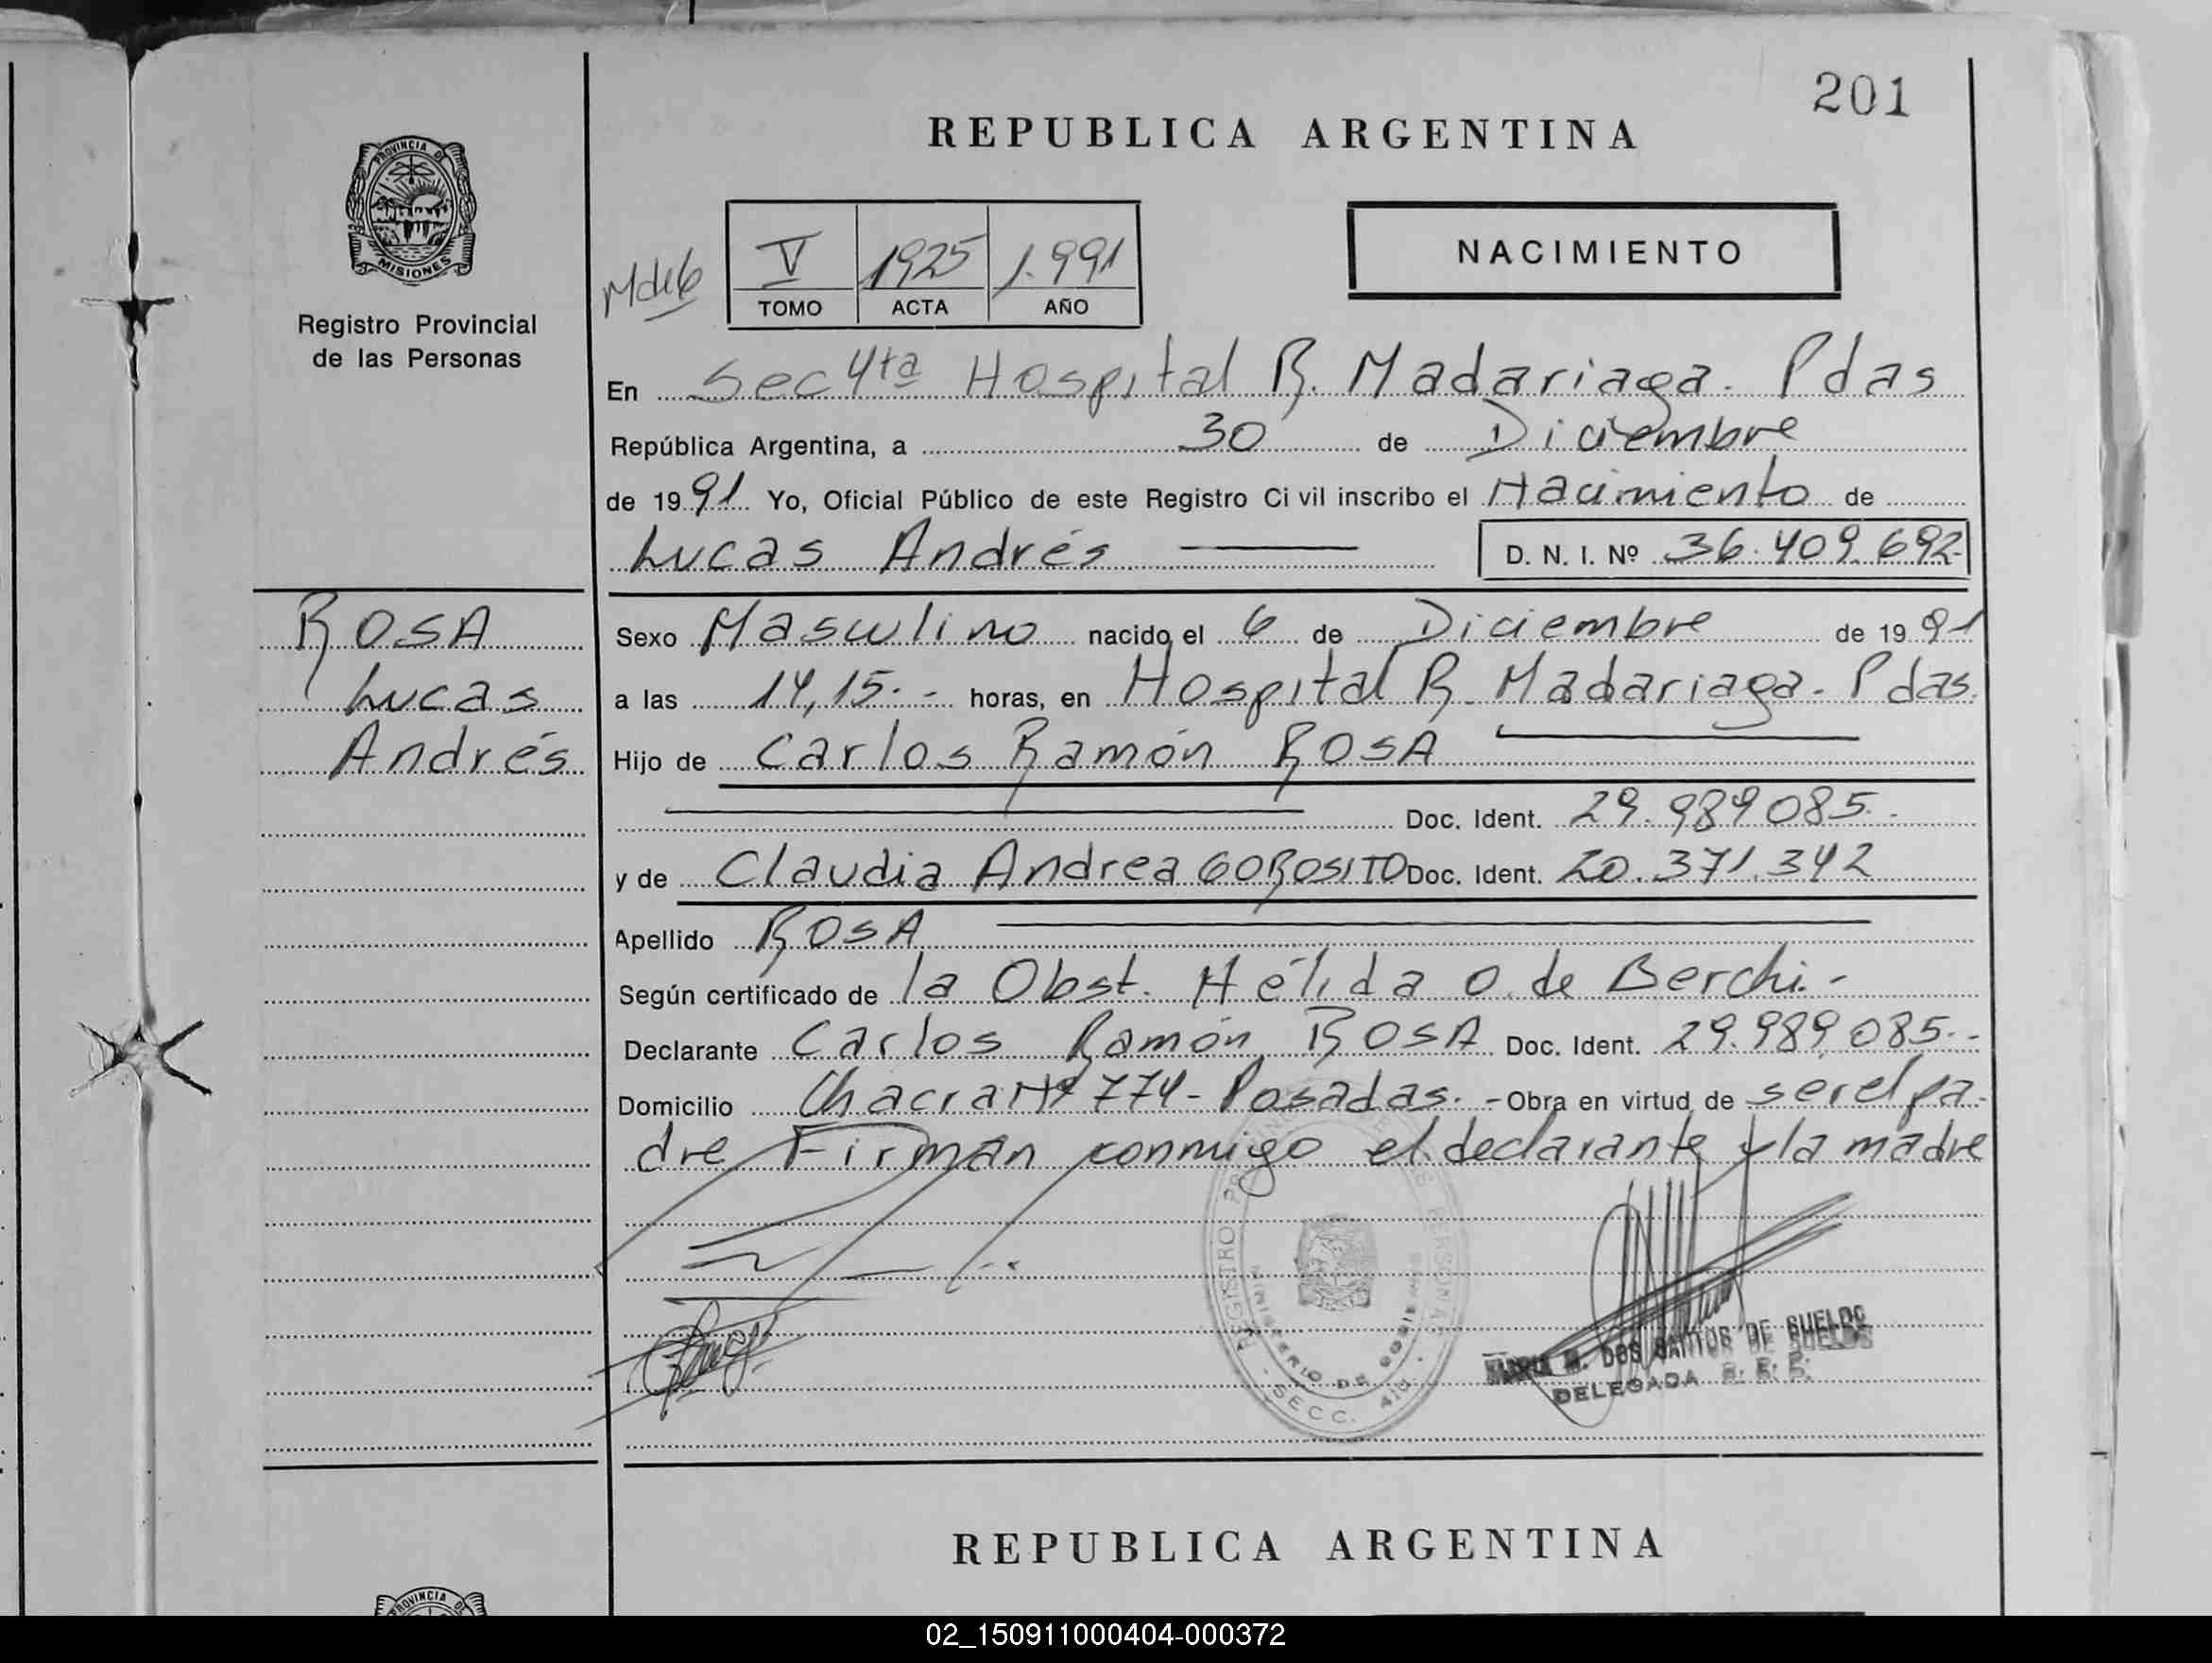 201
REPUBLICA ARGENTINA
PROVINCIA DE
MISIONES
Registro Provincial
de las Personas
V 1925 1.991
TOMO ACTA AÑO
NACIMIENTO
En Sec 4ta Hospital R. Madariaga. Pdas
República Argentina, a 30 de Diciembre
de 1991 Yo, Oficial Público de este Registro Civil inscribo el Nacimiento de
Lucas Andrés D. N. I. Nº 36.409.692-
ROSA
Lucas
Andrés
Sexo Masculino nacido el 6 de Diciembre de 1991
a las 14,15.- horas, en Hospital R. Madariaga. Pdas.
Hijo de Carlos Ramón ROSA
Doc. Ident. 29.989.085.-
y de Claudia Andrea GOROSITO Doc. Ident. 20.371.342
Apellido ROSA
Según certificado de la Obst. Nélida O. de Berchi.-
Declarante Carlos Ramón ROSA Doc. Ident. 29.989.085.-
Domicilio Chacra Nº 774- Posadas. - Obra en virtud de ser el pa-
dre Firman conmigo el declarante y la madre
REGISTRO
MINISTERIO DE
SECC. 4ta
M. DOS SANTOS DE SUELDO
DELEGADA
REPUBLICA ARGENTINA
PROVINCIA
02_150911000404-000372